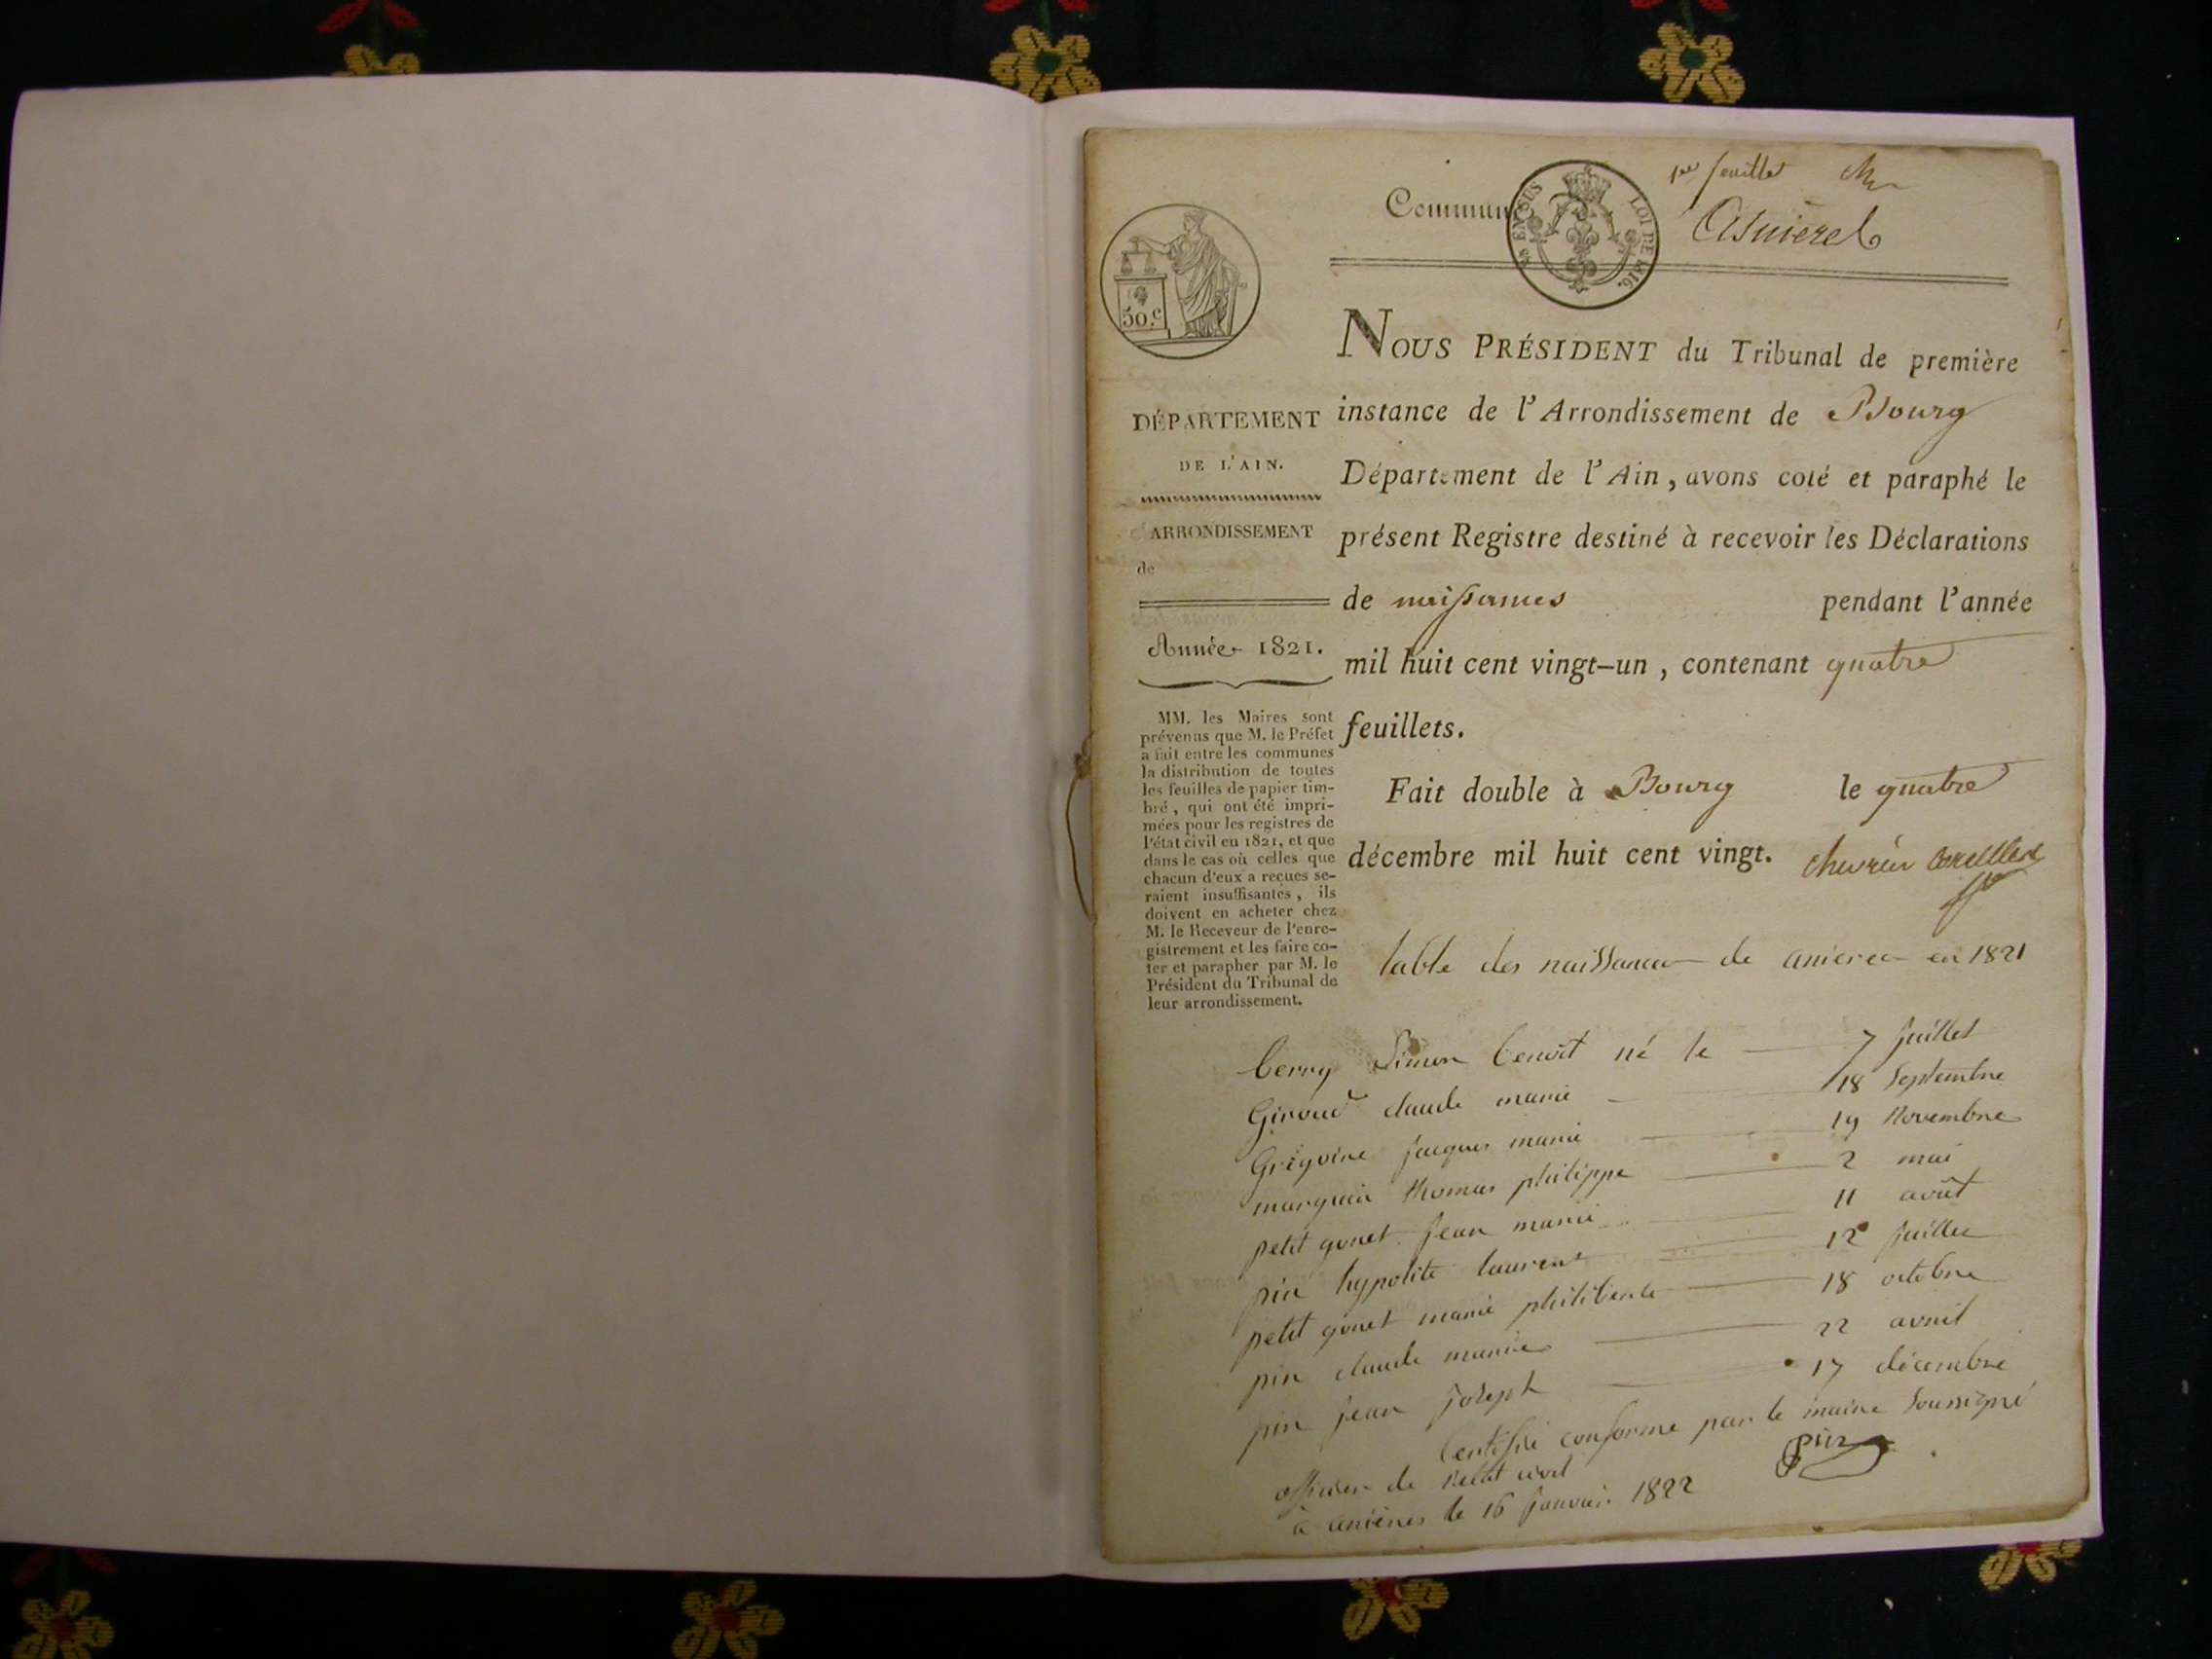 1er feuillet
Commune
Asnieres
EN SUS
LOI DE 1816.
50.c
NOUS PRÉSIDENT du Tribunal de première
instance de l'Arrondissement de Bourg
Département de l'Ain, avons coté et paraphé le
présent Registre destiné à recevoir les Déclarations
de naissances pendant l'année
mil huit cent vingt-un, contenant quatre
feuillets.
Fait double à Bourg le quatre
décembre mil huit cent vingt.
DÉPARTEMENT
DE L'AIN.
ARRONDISSEMENT
de
Année 1821.
MM. les Maires sont
prévenus que M. le Préfet
a fait entre les communes
la distribution de toutes
les feuilles de papier tim-
bré, qui ont été impri-
mées pour les registres de
l'état civil en 1821, et que
dans le cas où celles que
chacun d'eux a reçues se-
raient insuffisantes, ils
doivent en acheter chez
M. le Receveur de l'enre-
gistrement et les faire co-
ter et parapher par M. le
Président du Tribunal de
leur arrondissement.
table des naissances de anieres en 1821
berry Simon benoit né le 7 juillet
Giroud claude marie 18 Septembre
Grégoire jacques marie 19 Novembre
marguin thomas philippe 2 mai
petit gonet jean marie 11 août
pin hypolite laurent 12 juillet
petit gonet marie philiberte 18 octobre
pin claude marie 22 avril
pin jean joseph 17 décembre
Certifié conforme par le maire Soussigné
officier de l'etat civil
a anieres le 16 janvier 1822
pin